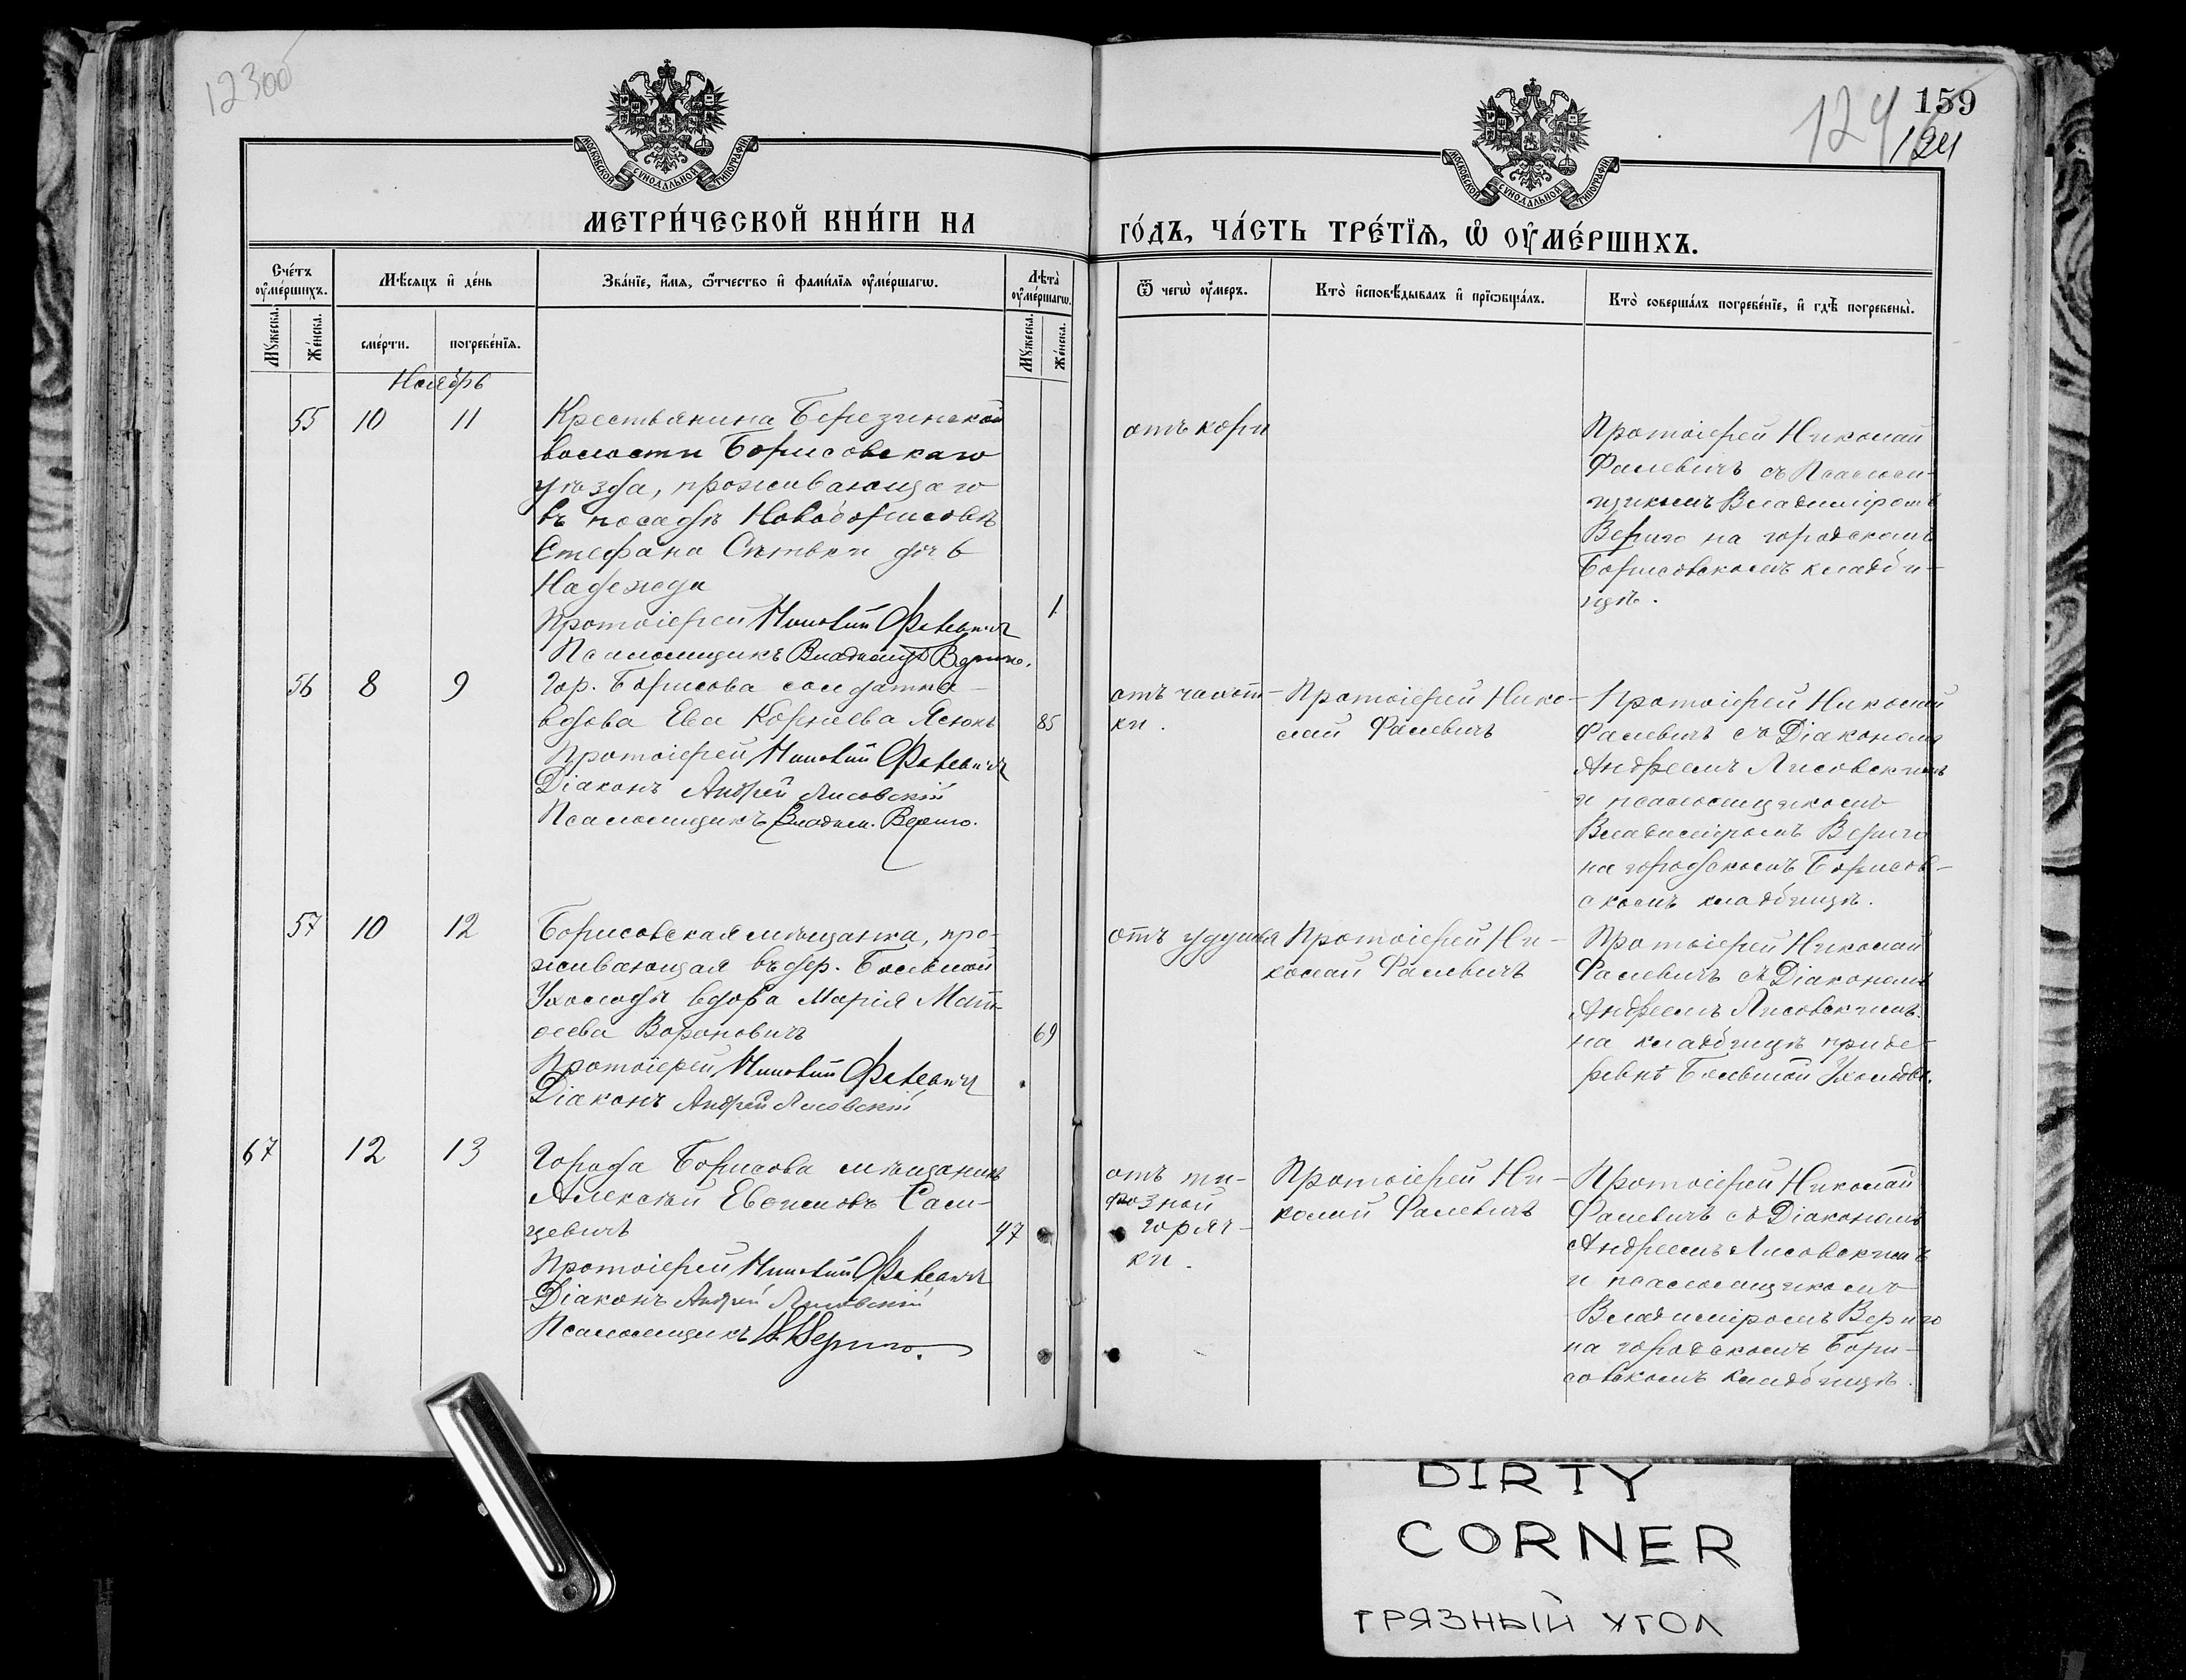 12300
159
124
124
МОСКОВСКОЙ СУНОДАЛЬНОЙ ТИПОГРАФІИ
МОСКОВСКОЙ СУНОДАЛЬНОЙ ТИПОГРАФІИ
МЕТРИ́ЧЕСКОЙ КНИ́ГИ НА
ГО́ДЪ, ЧА́СТЬ ТРЕ́ТІѦ, Ѡ҆ ОУ҆МЕ́РШИХЪ.
Сче́тъ оу҆ме́ршихъ.
Мѣ́сяцъ и҆ де́нь
Зва́нїе, и҆́мя, ѻ҆́тчество и҆ фами́лїя оу҆ме́ршагѡ.
Лѣта̀ оу҆ме́ршагѡ.
Ѿ чегѡ̀ оу҆́меръ.
Кто̀ и҆сповѣ́дывалъ и҆ прїѡбща́лъ.
Кто̀ соверша́лъ погребе́нїе, и҆ гдѣ̀ погребены̀.
Мꙋжеска.
Же́нска.
сме́рти.
погребе́нїя.
Мꙋжеска.
Же́нска.
Ноябрь
55 10 11
Крестьянина Березинской
волости Борисовскаго
уѣзда, проживающаго
въ посадѣ Новоборисовѣ
Стефана Ситвки дочь
Надежда
1
Протоіерей Николай Фалевичъ
Псаломщикъ Владиміръ Вериго.
отъ кори
Протоіерей Николай
Фалевичъ съ Псалом-
щикомъ Владиміромъ
Вериго на городскомъ
Борисовскомъ кладби-
щѣ.
56 8 9
Гор. Борисова солдатка-
вдова Ева Корнеева Ясюкъ
85
Протоіерей Николай Фалевичъ
Діаконъ Андрей Лисовскій
Псаломщикъ Владим. Вериго.
отъ чахот-
ки.
Протоіерей Нико-
лай Фалевичъ
Протоіерей Николай
Фалевичъ съ Діакономъ
Андреемъ Лисовскимъ
и псаломщикомъ
Владиміромъ Вериго
на городскомъ Борисов-
скомъ кладбищѣ.
57 10 12
Борисовская мѣщанка, про-
живающая въ дер. Большой
Ухолодѣ вдова Марія Мат-
ѳеева Вороновичъ
69
Протоіерей Николай Фалевичъ
Діаконъ Андрей Лисовскій
отъ удушья
Протоіерей Ни-
колай Фалевичъ
Протоіерей Николай
Фалевичъ съ Діакономъ
Андреемъ Лисовскимъ
на кладбищѣ при де-
ревнѣ Большой Ухолодѣ.
67 12 13
Города Борисова мѣщанинъ
Алексѣй Евѳимовъ Сали-
цевичъ
47
Протоіерей Николай Фалевичъ
Діаконъ Андрей Лисовскій
Псаломщикъ В. Вериго.
отъ ти-
фозной
горяч-
ки.
Протоіерей Ни-
колай Фалевичъ
Протоіерей Николай
Фалевичъ съ Діакономъ
Андреемъ Лисовскимъ
и псаломщикомъ
Владиміромъ Вериго
на городскомъ Бори-
совскомъ кладбищѣ.
DIRTY
CORNER
ГРЯЗНЫЙ УГОЛ